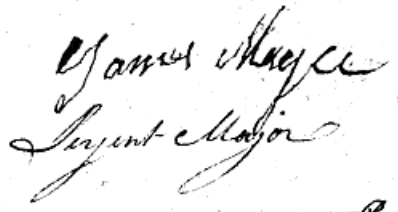 James Magee
Serjent Major